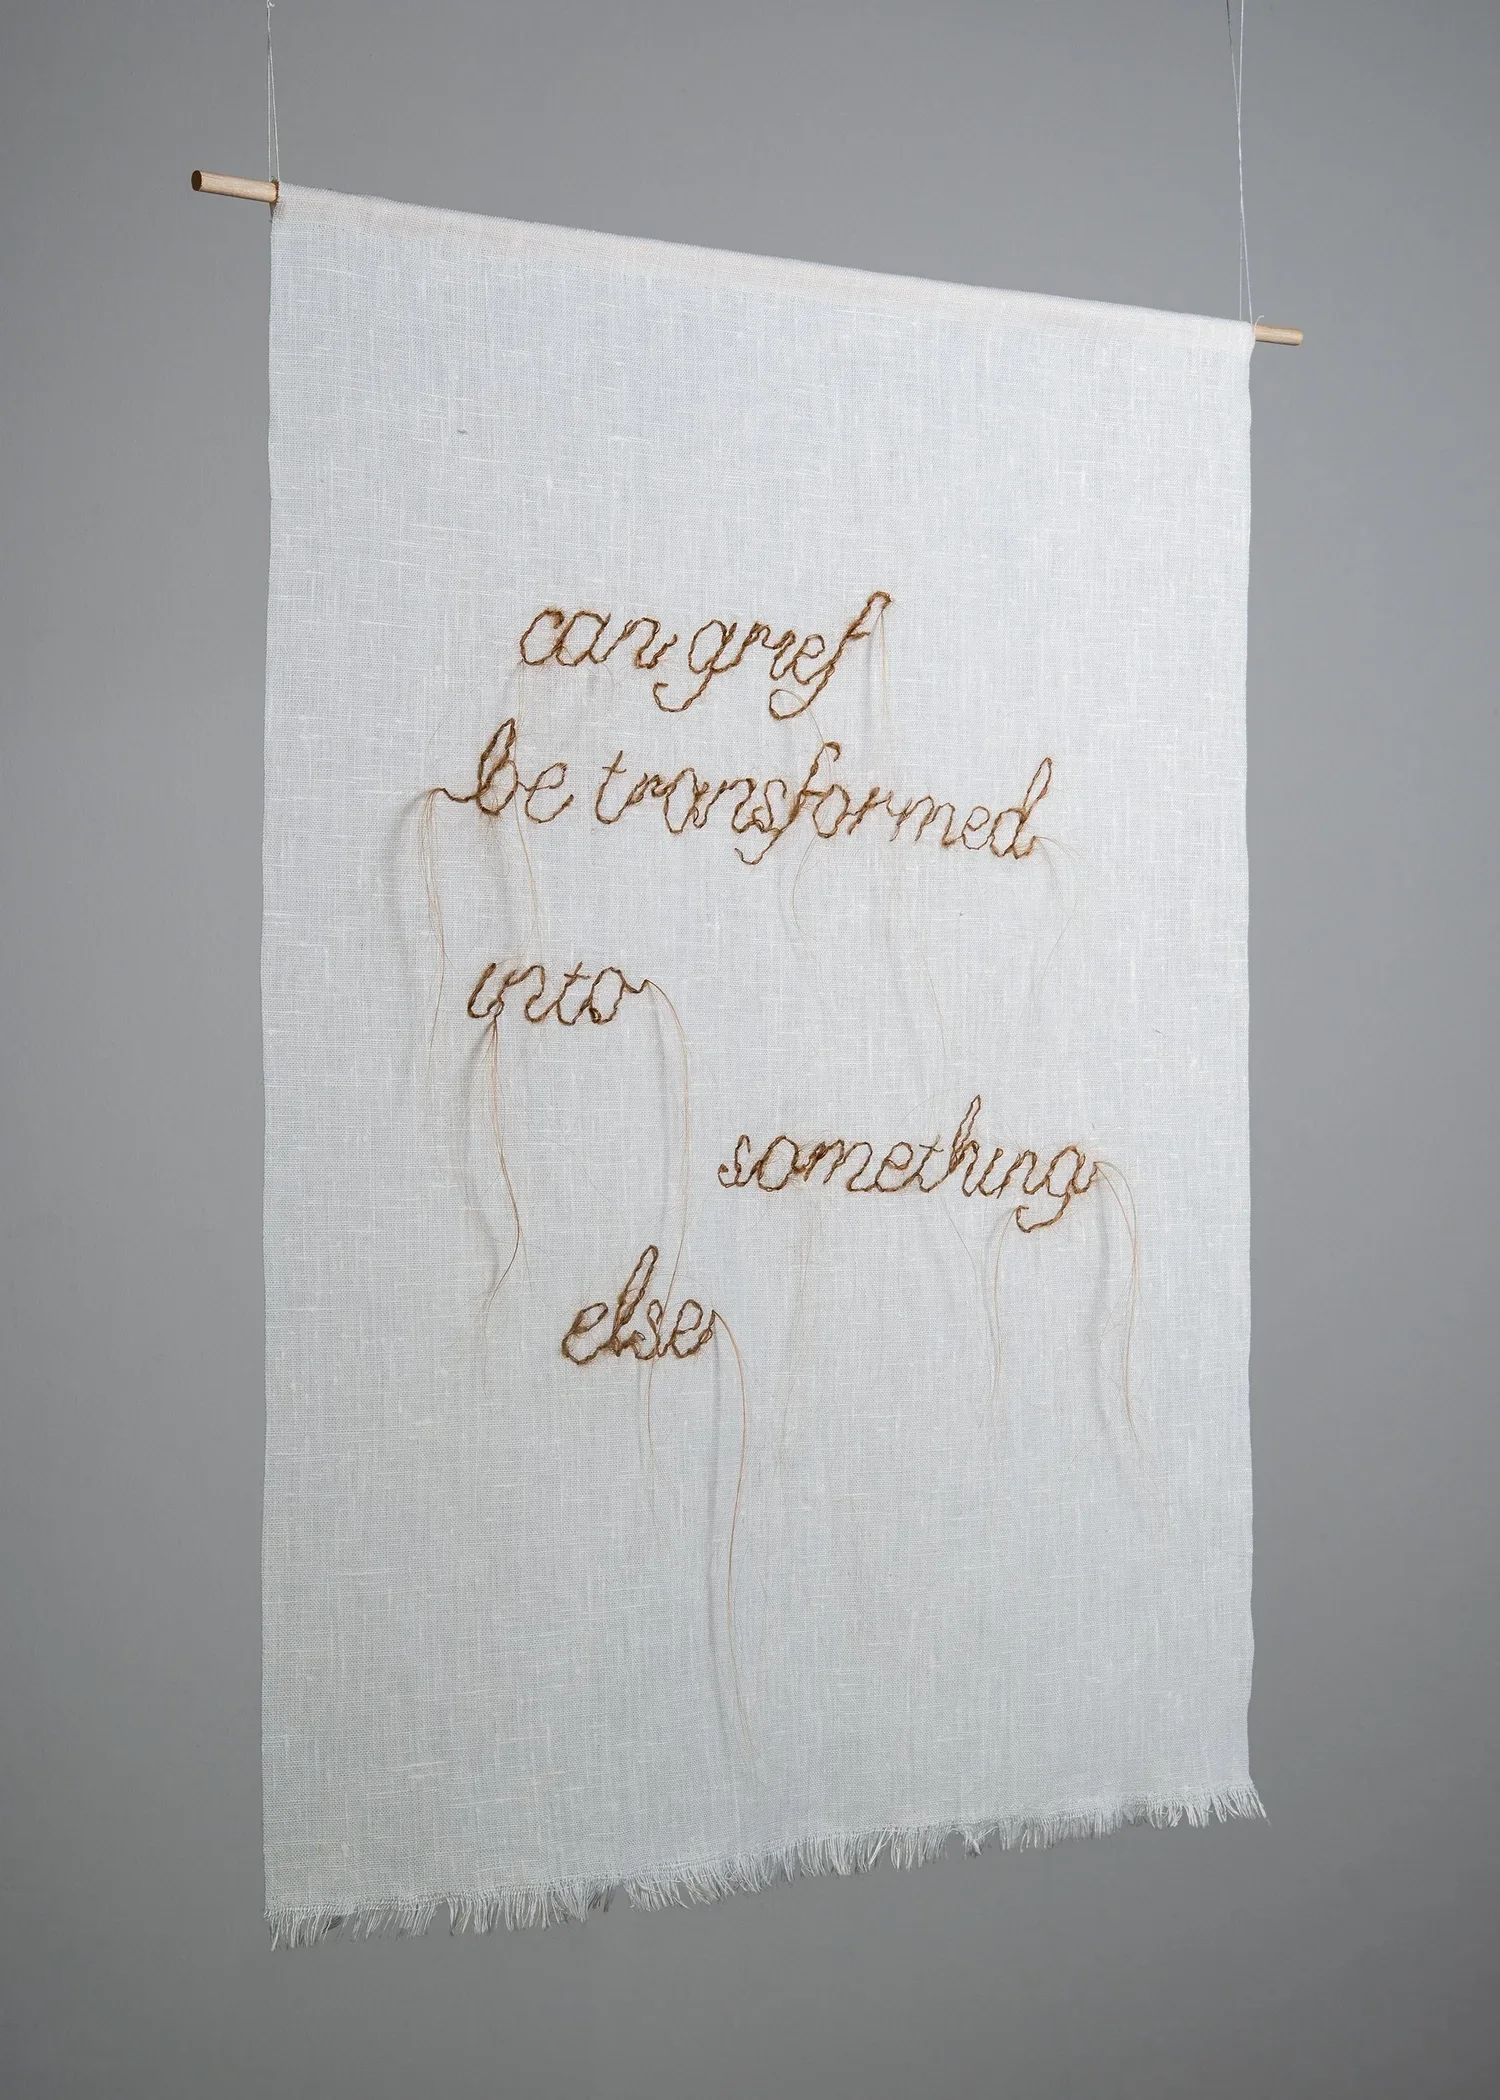 can grief
be transformed
into
something
else